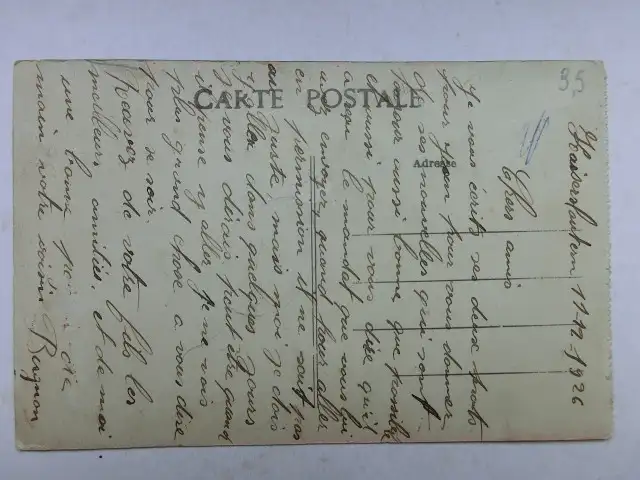 CARTE POSTALE
Adresse
3,5
Kaiserslautern 11-12-1926
Chers amis
Je vous écrits ses deux mots
pour pour vous donner
de ses nouvelles qui sont
aussi bonne que possible
et aussi pour vous dire qu'il
a le mandat que vous lui
avez envoyez, quand pour aller
en permission il ne sait pas
au juste mais moi je dois
aller dans quelques jours
je vous dirais peut être quand
pense y aller. Je ne vois
plus grand chose a vous dire
pour se soir.
Recevez de votre fils les
meilleurs amitiés. et de moi
une bonne poignée
main votre voisin
Bugnon